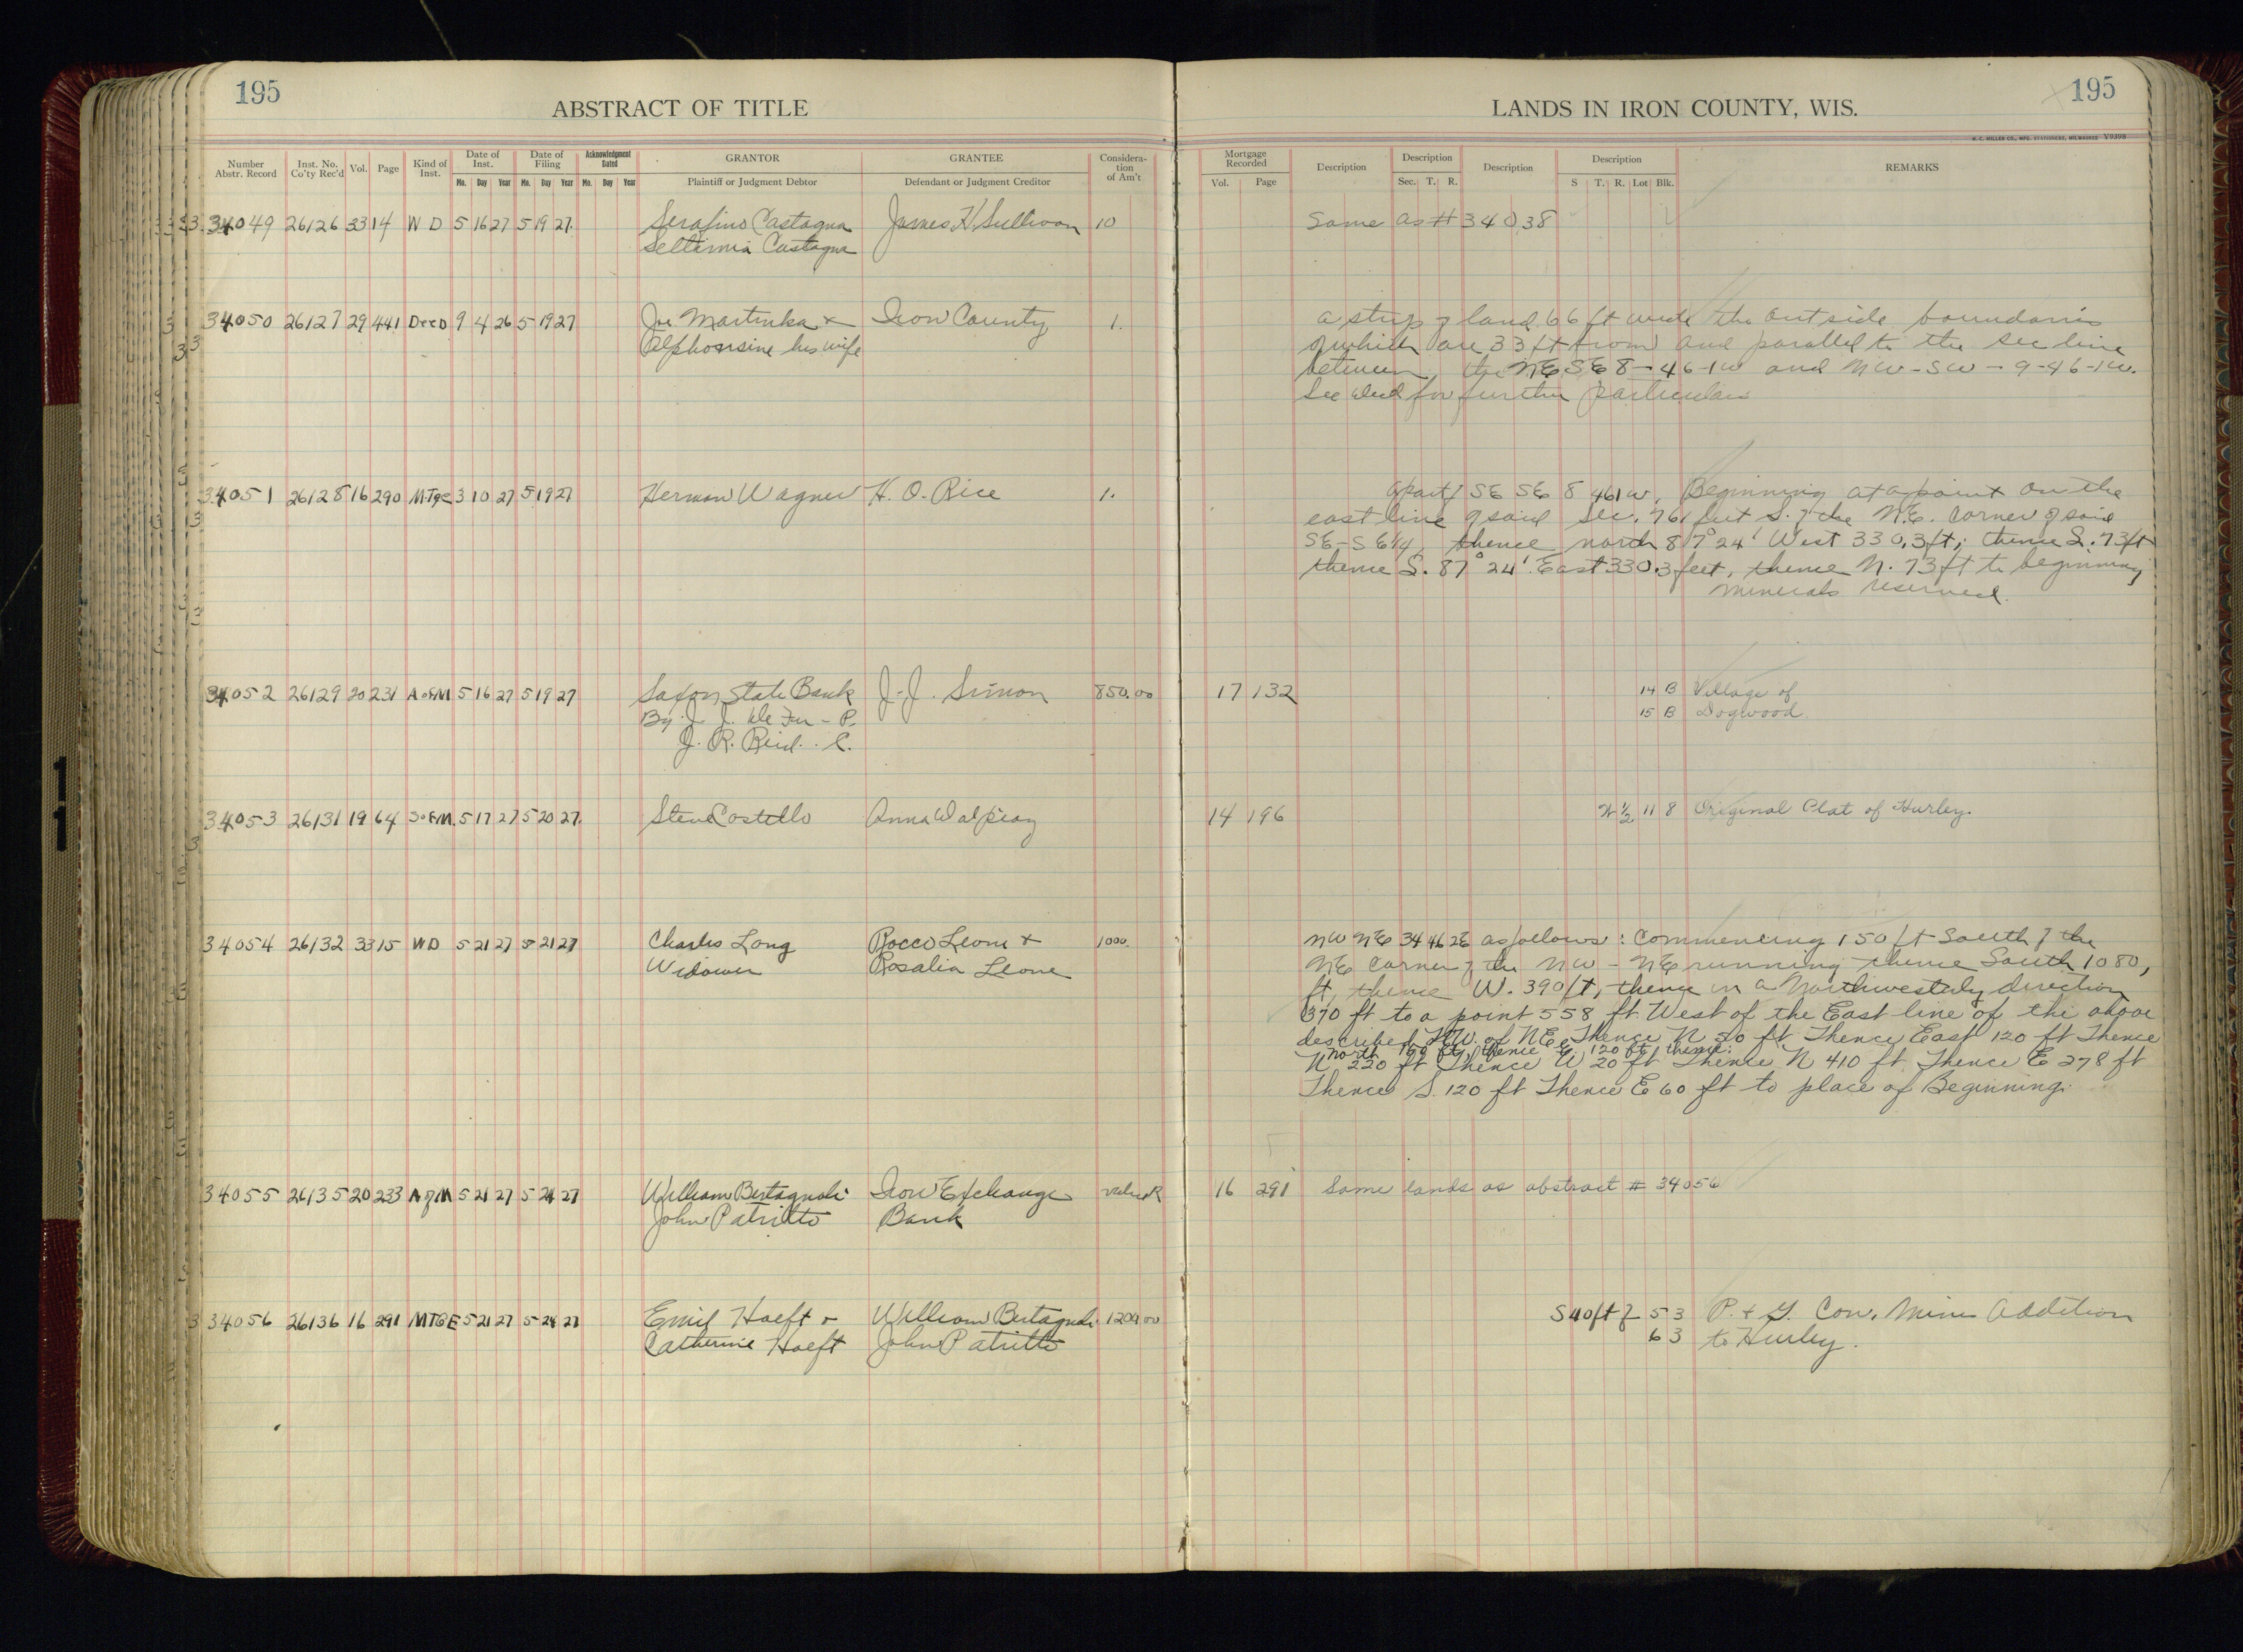 195
ABSTRACT OF TITLE
LANDS IN IRON COUNTY, WIS.
195
H. C. MILLER CO., MFG. STATIONERS, MILWAUKEE V9398
Number Abstr. Record
Inst. No. Co'ty Rec'd
Vol.
Page
Kind of Inst.
Date of Inst.
Mo. Day Year
Date of Filing
Mo. Day Year
Acknowledgment Dated
Mo. Day Year
GRANTOR
Plaintiff or Judgment Debtor
GRANTEE
Defendant or Judgment Creditor
Considera-
tion
of Am't
Mortgage Recorded
Vol. Page
Description
Description
Sec. T. R.
Description
Description
S T. R. Lot Blk.
REMARKS
34049 26126 33 14 W D 5 16 27 5 19 27 Serafino Castagna James H Sullivan 10 Same as # 34038
Castagna
34050 26127 29 441 Deed 9 4 26 5 19 27 Joe Martinka + Iron County 1. a strip of land 66 ft wide the outside boundaries
Alphonsine his wife of which are 33 ft from and parallel to the sec line
between the NE SE 8-46-1W and NW-SW-9-46-1W.
See deed for further particulars
34051 26128 16 290 Mtge 3 10 27 5 19 27 Herman Wagner H. O. Rice 1. a part of SE SE 8 46 1W, Beginning at a point on the
east line of said Sec. 761 feet S. of the N.E. corner of said
SE-SE 1/4, thence north 87° 24' West 330.3 ft; thence S. 73 ft
thence S. 87° 24' East 330.3 feet, thence N. 73 ft to beginning
minerals reserved.
34052 26129 20 231 A of M 5 16 27 5 19 27 Saxon State Bank J. J. Simon 850.00 17 132 14 B Village of
By J. J. - P. 15 B Dogwood
J. R. Reid . . C.
34053 26131 19 64 S of M. 5 17 27 5 20 27. Steve Costello Anna 14 196 N 1/2 11 8 Original Plat of Hurley.
34054 26132 33 15 W D 5 21 27 5 21 27 Charles Long Rocco Leone + 1000. NW NE 34 46 2E as follows: Commencing 150 ft South of the
Widower Rosalia Leone NE Corner of the NW - NE running thence South 1080,
ft, thence W. 390 ft, thence in a Northwesterly direction
370 ft to a point 558 ft West of the East line of the above
described NW. of NE. Thence N 50 ft Thence East 120 ft Thence
North 150 ft, thence E, 120 ft, thence:
N 220 ft Thence W 20 ft Thence N 410 ft. Thence E 278 ft
Thence S. 120 ft Thence E 60 ft to place of Beginning.
34055 26135 20 233 A of M 5 21 27 5 24 27 William Bertagnoli Iron Exchange 16 291 Same lands as abstract # 34056
John Patritto Bank
34056 26136 16 291 MTGE 5 21 27 5 24 27 Emil Hoeft & William Bertagnoli 1200.00 S 40 ft of 5 3 P. & G. Con. Mine Addition
Catherine Hoeft John Patritto 6 3 to Hurley.